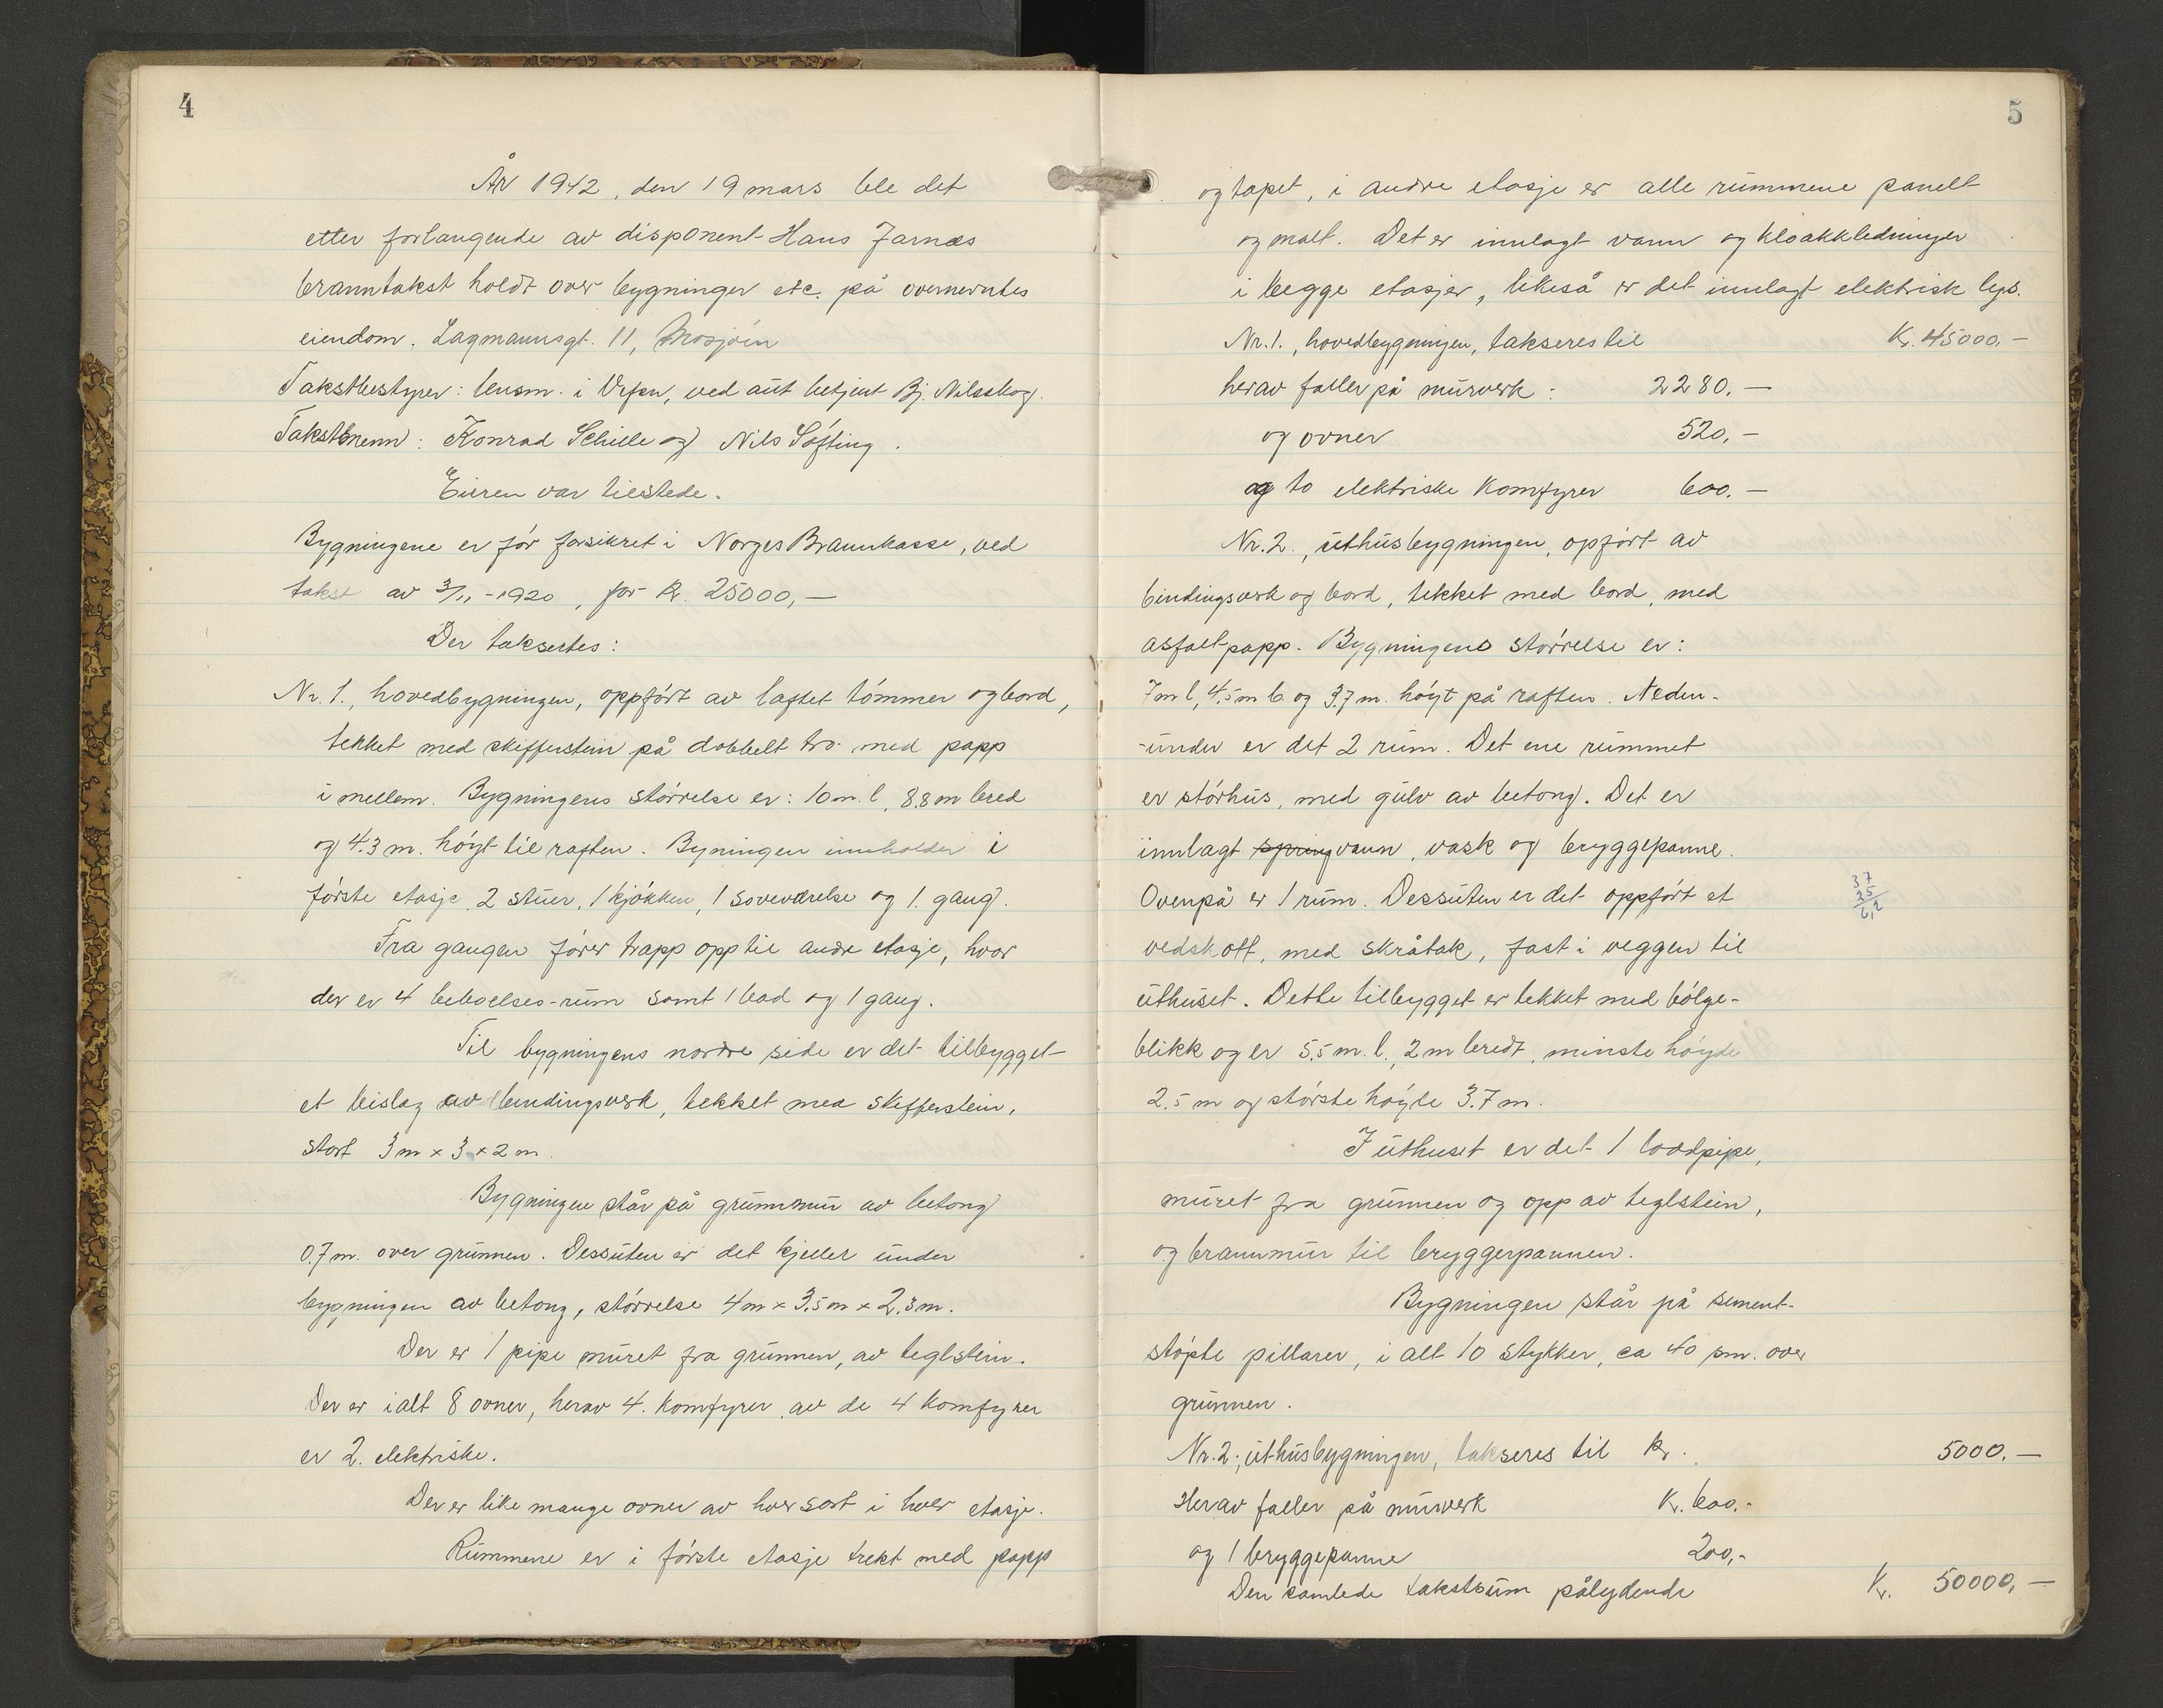 4
År 1942, den 19 mars ble det
etter forlangende av disponent Hans Jarnæs
branntakst holdt over bygninger etc. på overnevntes
eiendom. Lagmannsgt. 11, Mosjøen
Takstbestyrer: lensm. i Vefsn, ved aut betjent Bj. Nilsskog.
Takstmenn: Konrad Schille og Nils Søfting.
Eieren var tilstede.
Bygningene er før forsikret i Norges Brannkasse, ved
takst av 3/11-1920, for Kr. 25000,-
Der taksertes:
Nr. 1., hovedbygningen, oppført av laftet tømmer og bord,
tekket med skifferstein på dobbelt tro med papp
i mellem. Bygningens størrelse er: 10 m. l, 8.8 m bred
og 4.3 m. høyt til raften. Byningen innholder i
første etasje 2 stuer, 1 kjøkken, 1 soveværelse og 1. gang.
Fra gangen fører trapp opp til andre etasje, hvor
der er 4 beboelses-rum samt 1 bad og 1 gang.
Til bygningens nordre side er det tilbygget
et bislag av bindingsverk, tekket med skifferstein,
stort 3 m x 3 x 2 m.
Bygningen står på grunnmur av betong
0.7 m. over grunnen. Dessuten er det kjeller under
bygningen av betong, størrelse 4 m x 3.5 m x 2.3 m.
Der er 1 pipe muret fra grunnen, av teglstein.
Der er ialt 8 ovner, herav 4. komfyrer av de 4 komfyrer
er 2. elektriske.
Der er like mange ovner av hver sort i hver etasje.
Rummene er i første etasje trekt med papp
5
og tapet, i andre etasje er alle rummene panelt
og malt. Det er innlagt vann og kloakkledninger
i begge etasjer, likeså er det innlagt elektrisk lys.
Nr. 1., hovedbygningen, takseres til Kr. 45000.-
herav faller på murverk: 2280.-
og ovner 520,-
og to elektriske komfyrer 600.-
Nr. 2., uthusbygningen, opført av
bindingsverk og bord, tekket med bord, med
asfaltpapp. Bygningens størrelse er:
7 m l, 4,5 m b. og 3.7 m. høyt på raften. Neden-
-under er det 2 rum. Det ene rummet
er størhus, med gulv av betong. Det er
innlagt springvann, vask og bryggepanne.
Ovenpå er 1 rum. Dessuten er det oppført et
37
25
6,2
vedskott, med skråtak, fast i veggen til
uthuset. Dette tilbygget er tekket med bølge-
blikk og er 5.5 m. l., 2 m bredt, minste høyde
2.5 m og største høyde 3.7 m.
I uthuset er det 1 pipe,
muret fra grunnen og opp av teglstein,
og brannmur til bryggerpannen.
Bygningen står på sement-
støpte pillarer, i alt 10 stykker, ca 40 sm. over
grunnen.
Nr. 2., uthusbygningen, takseres til Kr. 5000.-
Herav faller på murverk Kr. 600.-
og 1 bryggepanne 200,-
Den samlede takstsum pålydende Kr. 50000,-